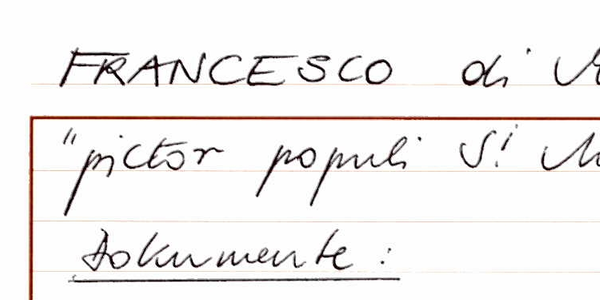 FRANCESCO di
"pictor populi S!
Dokumente: